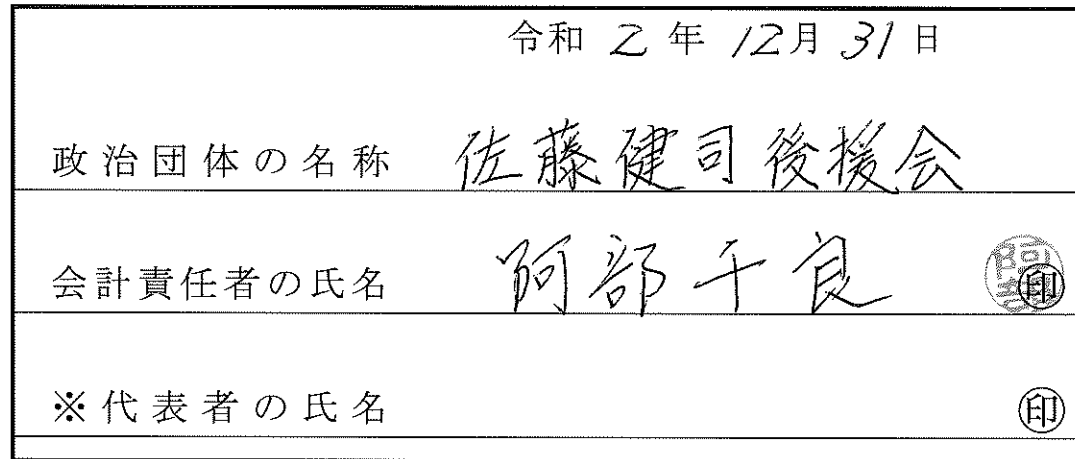 令和 2 年 12月 31 日
政治団体の名称 佐藤健司後援会
会計責任者の氏名 阿部千良 阿部 ㊞
※代表者の氏名 ㊞